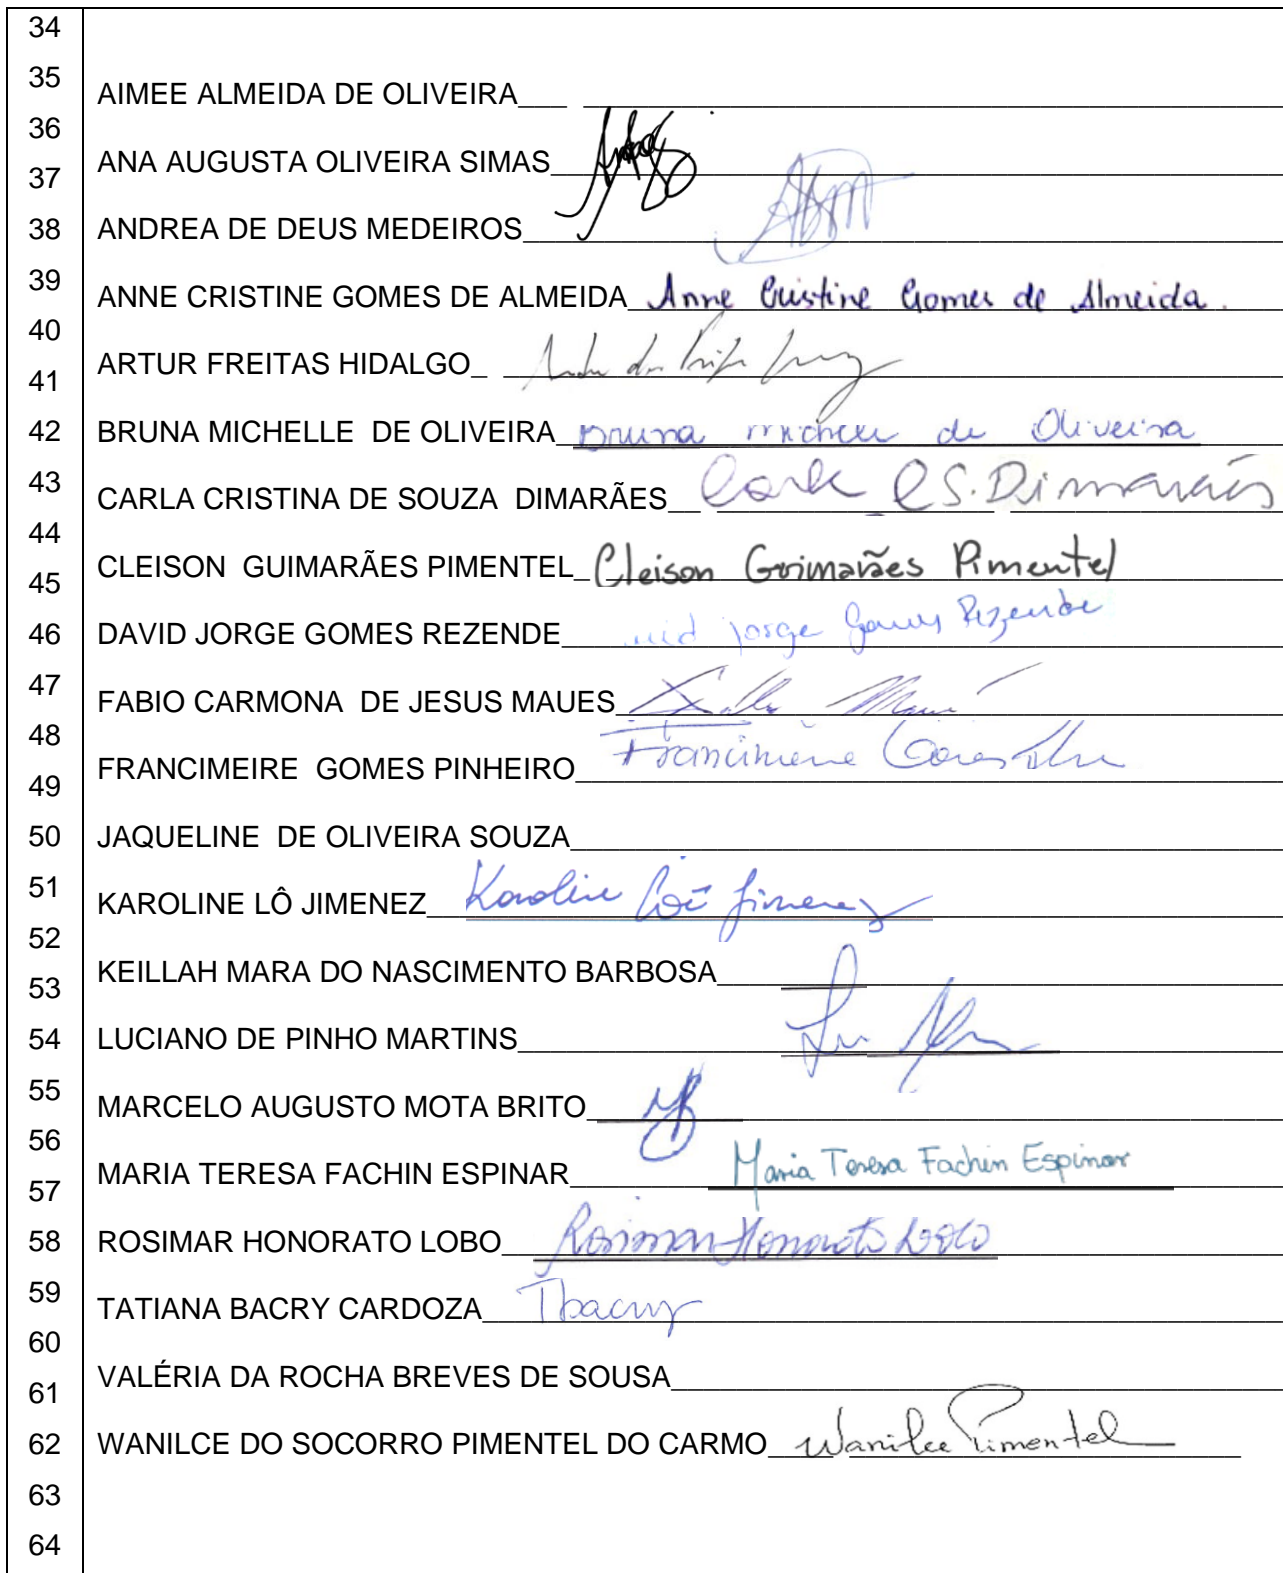 34
35
AIMEE ALMEIDA DE OLIVEIRA
36
ANA AUGUSTA OLIVEIRA SIMAS
37
38
ANDREA DE DEUS MEDEIROS
39
ANNE CRISTINE GOMES DE ALMEIDA Anne Cristine Gomes de Almeida.
40
ARTUR FREITAS HIDALGO
41
42
BRUNA MICHELLE DE OLIVEIRA Bruna Michelle de Oliveira
43
CARLA CRISTINA DE SOUZA DIMARÃES Carla C S. Dimarães
44
CLEISON GUIMARÃES PIMENTEL Cleison Guimarães Pimentel
45
46
DAVID JORGE GOMES REZENDE Jorge Gomes Rezende
47
FABIO CARMONA DE JESUS MAUES
48
FRANCIMEIRE GOMES PINHEIRO Francimeire
49
50
JAQUELINE DE OLIVEIRA SOUZA
51
KAROLINE LÔ JIMENEZ Karoline Jimenez
52
KEILLAH MARA DO NASCIMENTO BARBOSA
53
54
LUCIANO DE PINHO MARTINS
55
MARCELO AUGUSTO MOTA BRITO
56
MARIA TERESA FACHIN ESPINAR Maria Teresa Fachin Espinar
57
58
ROSIMAR HONORATO LOBO Rosimar Honorato Lobo
59
TATIANA BACRY CARDOZA Tbacry
60
VALÉRIA DA ROCHA BREVES DE SOUSA
61
62
WANILCE DO SOCORRO PIMENTEL DO CARMO Wanilce Pimentel
63
64